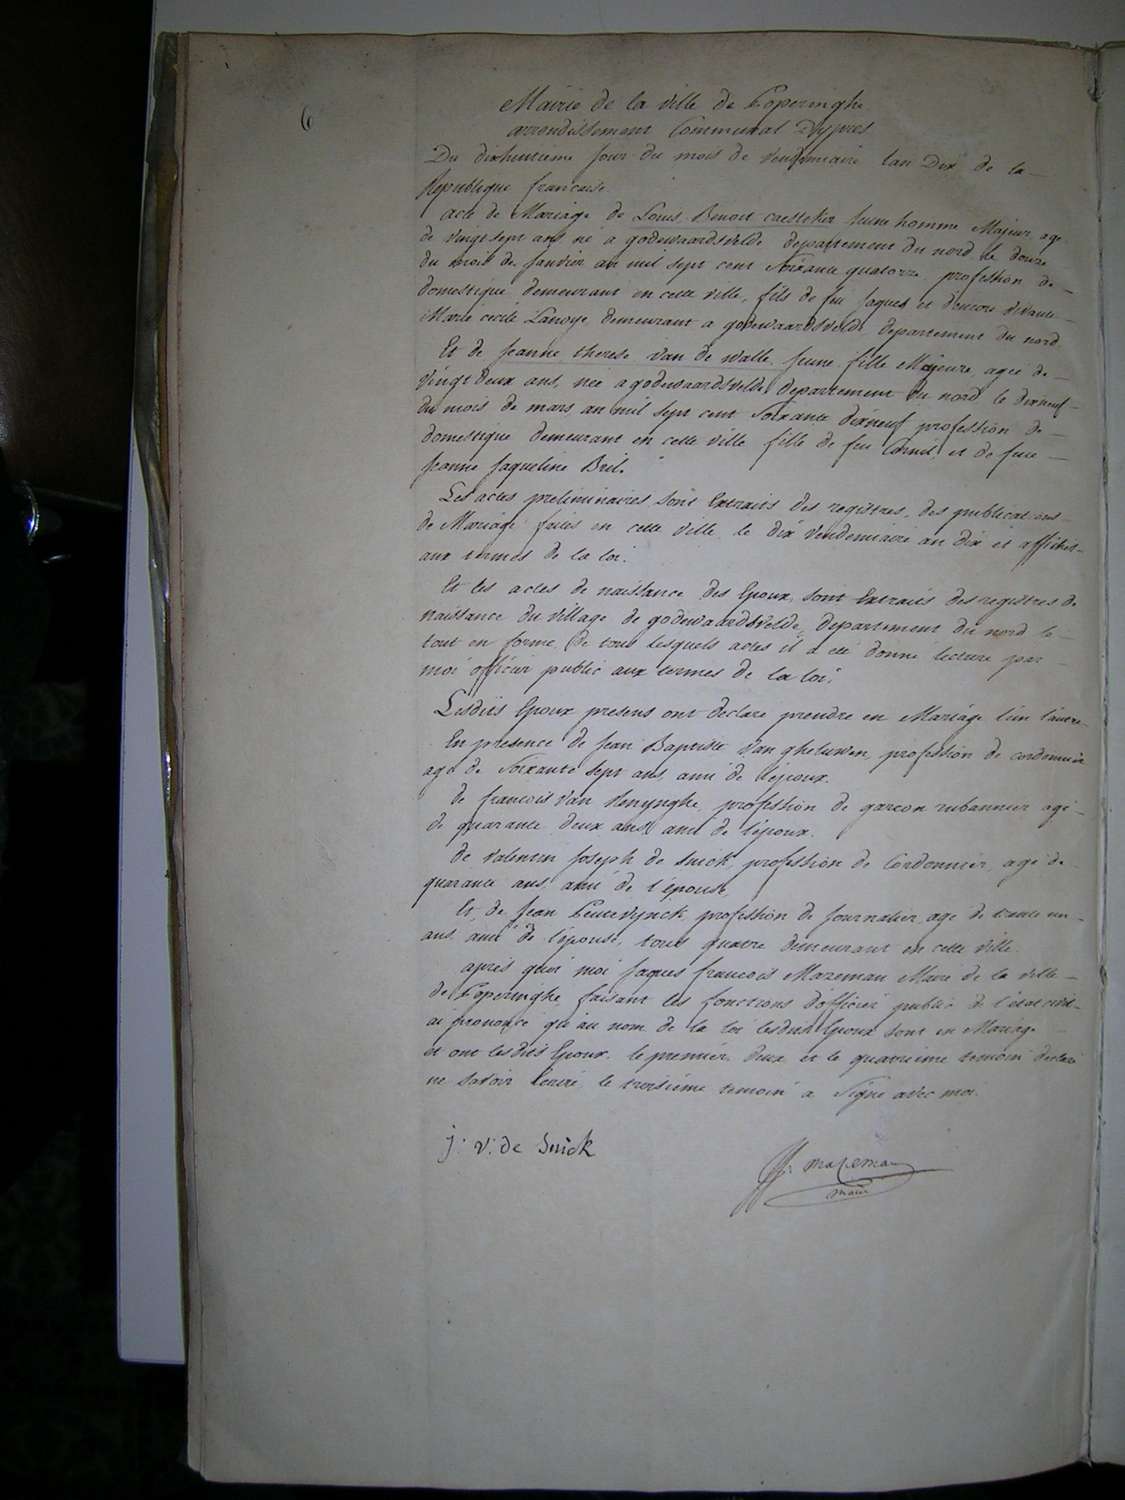 6
Mairie de la ville de Poperinghe
arrondissement Communal d'ypres
Du dixhuitieme jour du mois de vendemiaire l'an Dix de la
Republique francaise
acte de Mariage de Louis Benoit caesteker Jeune homme Majeur age
de vingt sept ans né a godewaardsvelde departement du nord le douze
du mois de Janvier an mil sept cent Soixante quatorze profession de
domestique demeurant en cette ville, fils de feu Jaques et d'encore vivante
Marie cecile Lanoye, demeurant a godewaardsvelde departement du nord
Et de Jeanne therese van de walle Jeune fille Majeure, agee de
vingt deux ans, née a godewaardsvelde departement du nord le dixneuf
du mois de mars an mil sept cent Soixante dixneuf profession de
domestique demeurant en cette ville fille de feu Cornil, et de feue
Jeanne Jaqueline Bril.
Les actes preliminaires sont Extraits des registres, des publications
de Mariage faites en cette ville, le dix vendemiaire an dix et affiches
aux termes de la loi.
Et les actes de naissance des Epoux, sont Extraits des registres de
naissance du village de godewaardsvelde, departement du nord le
tout en forme, de tous lesquels actes il a été donné lecture par
moi officier public aux termes de la loi;
Lesdits Epoux presens ont declare prendre en Mariage l'un l'autre
En presence de Jean Baptiste Van gheluwen, profession de cordonnier
agé de Soixante sept ans, ami de l'époux.
de francois Van Renynghe, profession de garcon rubannier agé
de quarante deux ans, ami de l'époux.
de Valentin Joseph de Snick, profession de Cordonnier, agé de
quarante ans, ami de l'épouse,
Et de Jean Penevynck, profession de Journalier age de trente un
ans, ami de l'épouse, tous quatre demeurant en cette ville.
après quoi moi Jaques francois Mazeman Maire de la ville
de Poperinghe faisant les fonctions d'officier public de l'état civil
ai prononcé qu'au nom de la loi lesdits Epoux sont en Mariage
et ont lesdits Epoux, le premier, deux et le quatrieme temoin declaré
ne savoir Ecrire, le troisiéme temoin a Signé avec moi.
j: v: de Snick
mazeman
maire